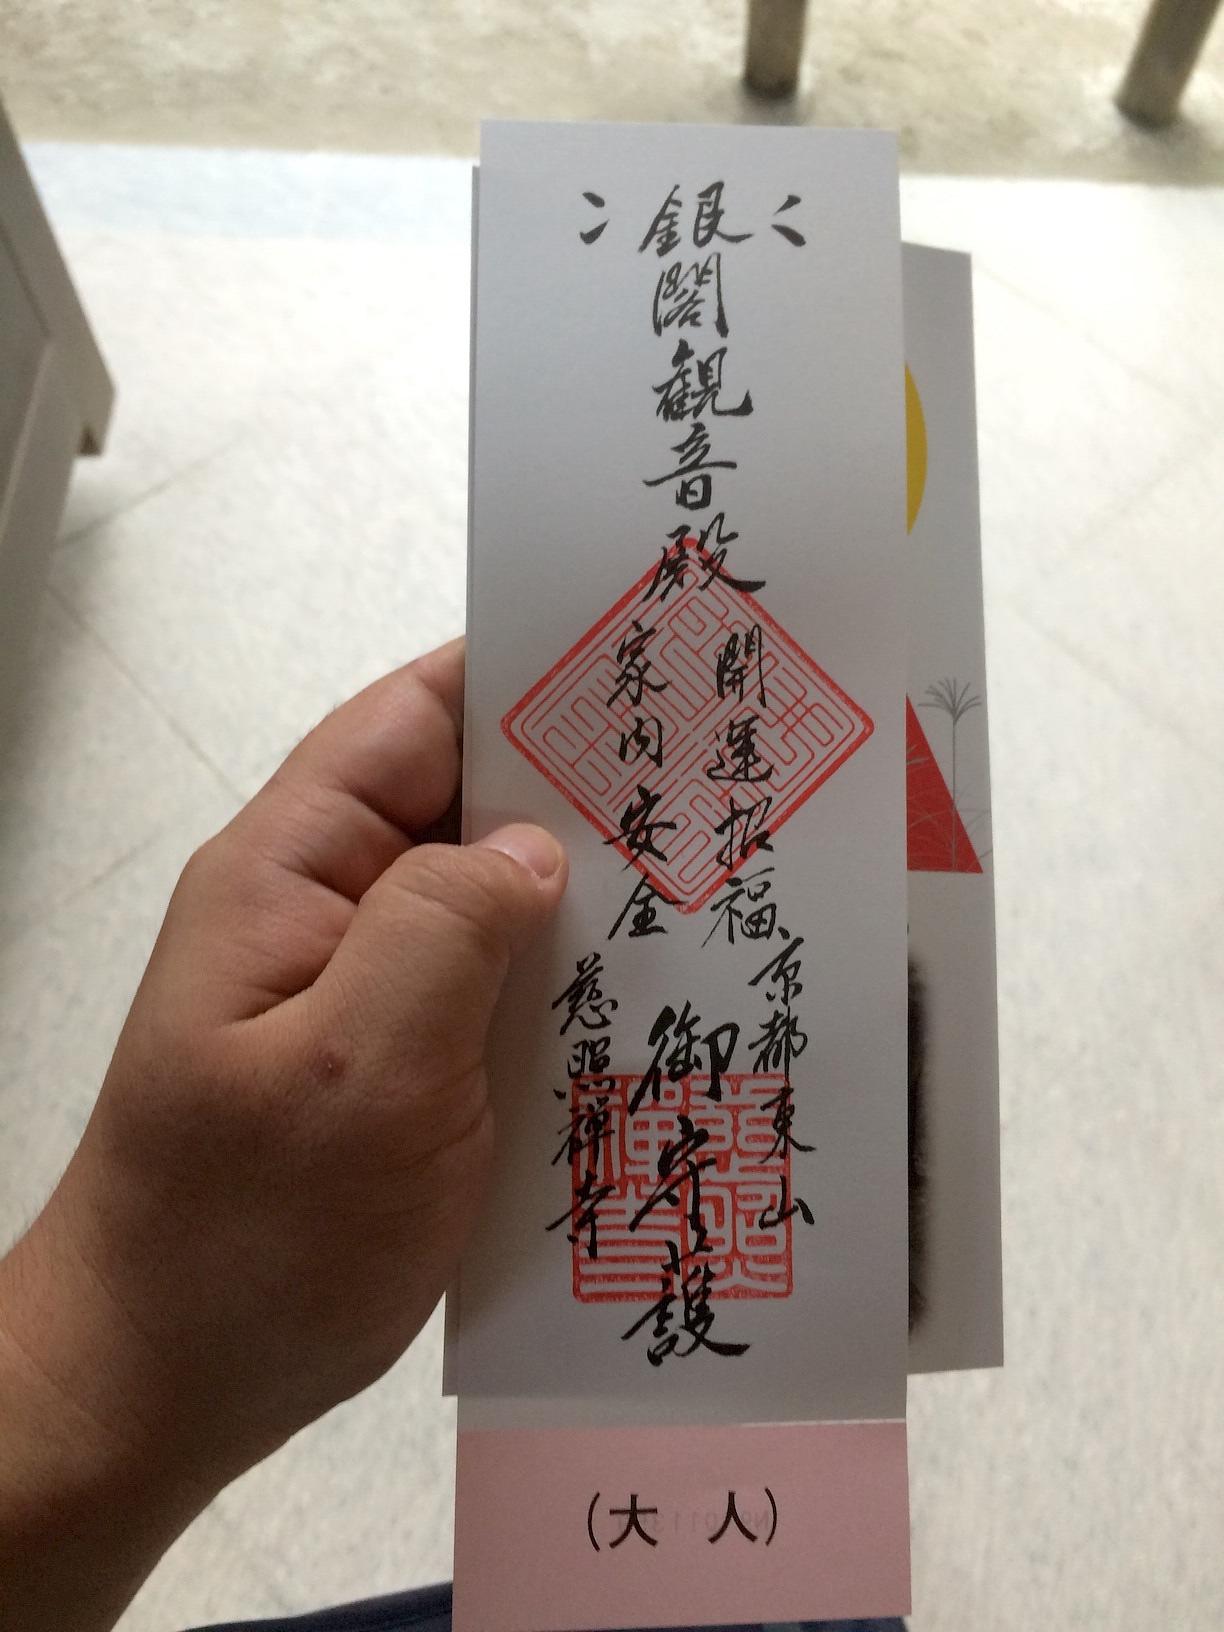 銀閣観音殿
開運招福
家内安全
京都東山
御守護
慈照禅寺
(大人)